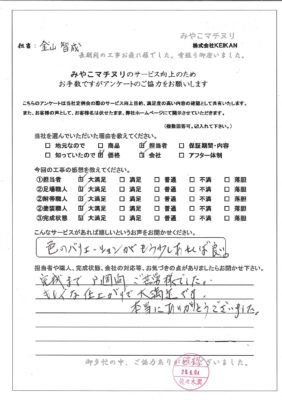 みやこマチヌリ
担当：金山 智成
株式会社KEIKAN
長期間の工事お疲れ様でした。
みやこマチヌリのサービス向上のため
お手数ですがアンケートのご協力をお願いします
こちらのアンケートは当社定例会の際のサービス向上目的、満足度の高い内容の確認として共有いたします。
また、お客様の声として、お客様名は伏せたまま、弊社ホームページにて開示させていただきます。
(複数回答可。☑入れて下さい。)
当社を選んでいただいた理由を教えてください。
□ 地元なので □ 商品 ☑ 担当者 □ 保証期間・内容
□ 知っていたので ☑ 価格 □ 会社 □ アフター体制
今回の工事の感想を教えてください。
①担当者 ☑ 大満足 □ 満足 □ 普通 □ 不満 □ 落胆
②足場職人 ☑ 大満足 □ 満足 □ 普通 □ 不満 □ 落胆
③解帯職人 ☑ 大満足 □ 満足 □ 普通 □ 不満 □ 落胆
④塗装職人 ☑ 大満足 □ 満足 □ 普通 □ 不満 □ 落胆
⑤完成状態 ☑ 大満足 □ 満足 □ 普通 □ 不満 □ 落胆
こんなサービスがあれば嬉しいというお声をお聞かせください。
色のバリエーションがもう少しあれば良い。
担当者や職人、完成状態、会社の対応等、お気づきの点がありましたらお聞かせ下さい。
完成まで 間 ご苦労様でした。
キレイな仕上がりで大満足です。
本当にありがとうございました。
御多忙の中、ご協力ありがとうございました。
佐々木